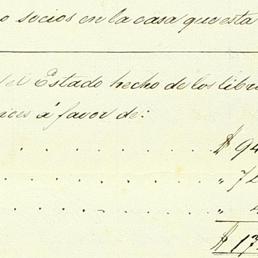 o socios en la casa que esta
el Estado hecho de los libr
ices á favor de:
. . . . . . . $ 94
. . . . . . . " 72
. . . . . . . "
$ 17